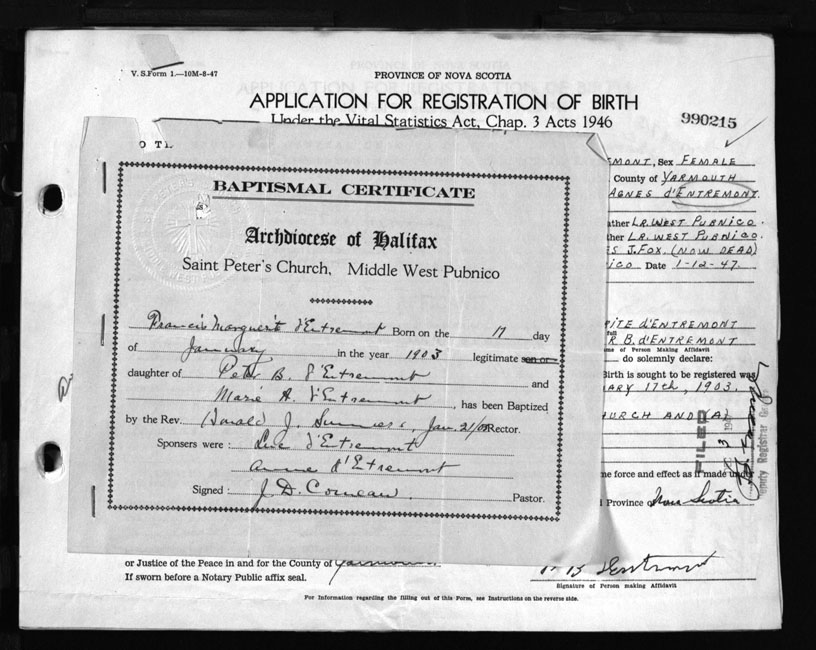 V. S. Form 1.—10M-8-47
PROVINCE OF NOVA SCOTIA
APPLICATION FOR REGISTRATION OF BIRTH
Under the Vital Statistics Act, Chap. 3 Acts 1946
990215
O TH
EMONT, Sex FEMALE
County of YARMOUTH
AGNES d'ENTREMONT.
ather LR. WEST PUBNICO.
ther LR. WEST PUBNICO.
ES J. FOX. (NOW DEAD)
ICO Date 1-12-47.
BAPTISMAL CERTIFICATE
Archdiocese of Halifax
Saint Peter's Church, Middle West Pubnico
Francis Marguerit d'Entremont Born on the 17 day
of January in the year 1903 legitimate son or
daughter of Peter B. d'Entremont and
Marie A. d'Entremont, has been Baptized
by the Rev. Harald J. Jan. 21/03 Rector.
Sponsers were: d'Entremont
Anne d'Entremont
Signed: J. D. Comeau. Pastor.
RITE d'ENTREMONT
full
R B. d'ENTREMONT
me of Person Making Affidavit
do solemnly declare:
Birth is sought to be registered was
ARY 17th, 1903.
HURCH AND
FILED
3 194
Deputy Registrar
me force and effect as if made under
Province of Nova Scotia
or Justice of the Peace in and for the County of Yarmouth
If sworn before a Notary Public affix seal.
B d'Entremont
Signature of Person making Affidavit
For Information regarding the filling out of this Form, see Instructions on the reverse side.